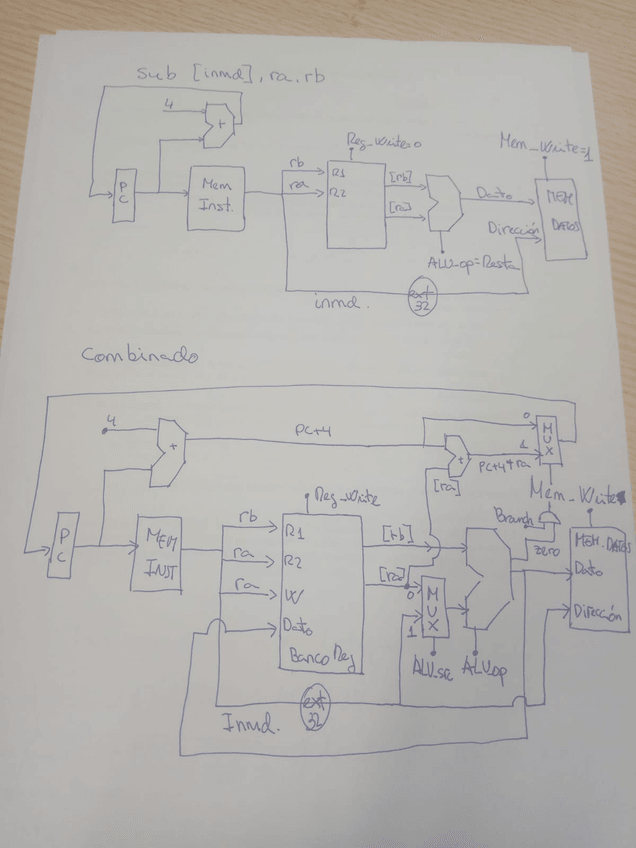 sub [inmd], ra, rb
4
+
PC
Mem Inst.
rb
ra
Reg_Write=0
R1
R2
[rb]
[ra]
ALU_op=Resta
Dato
Dirección
Mem_Write=1
MEM DATOS
inmd.
ext 32
Combinado
4
+
PC+4
+
PC+4+ra
[ra]
0
1
MUX
PC
MEM INST
rb
ra
ra
Reg_Write
R1
R2
W
Dato
Banco Reg
[rb]
[ra]
0
1
MUX
ALU_src
ALU_op
Branch
zero
Mem_Write
MEM. DATOS
Dato
Dirección
Inmd.
ext 32